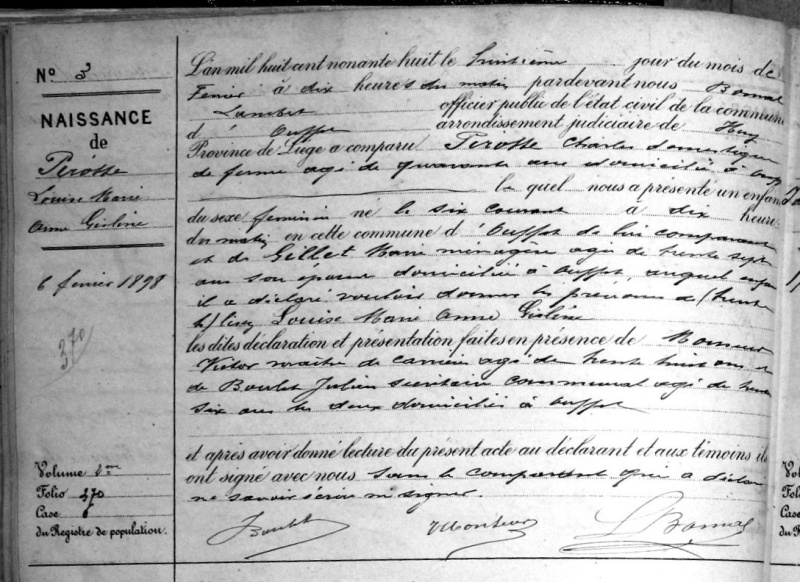 N° 3
NAISSANCE
de
Pirotte
Louise Marie
Anne Gislène
6 fevrier 1898
370
Volume 2me
Folio 370
Case 6
du Registre de population.
L'an mil huit cent nonante huit le huitième jour du mois de
Fevrier à dix heures du matin pardevant nous Bonnal
Lambert officier public de l'état civil de la commune
d' Ouffet arrondissement judiciaire de Huy
Province de Liège a comparu Pirotte Charles domestique
de ferme agé de quarante ans domicilié à Ouffet
le quel nous a présenté un enfant
du sexe feminin né le six courant à dix heures
du matin en cette commune d' Ouffet de lui comparant
et de Gillet Marie ménagère agée de trente sept
ans son épouse domiciliée à Ouffet, auquel enfant
il a déclaré vouloir donner les prénoms de
Louise Marie Anne Gislène
les dites déclaration et présentation faites en présence de Monseur
Victor maître de carrière agé de trente huit ans et
de Boulet Julien secrétaire communal agé de trente
six ans les deux domiciliés à Ouffet
et après avoir donné lecture du présent acte au déclarant et aux témoins ils
ont signé avec nous sauf le comparant qui a déclaré
ne savoir écrire ni signer.
JBoulet VMonseur LBonnal
Vol
Foli
Case
du R